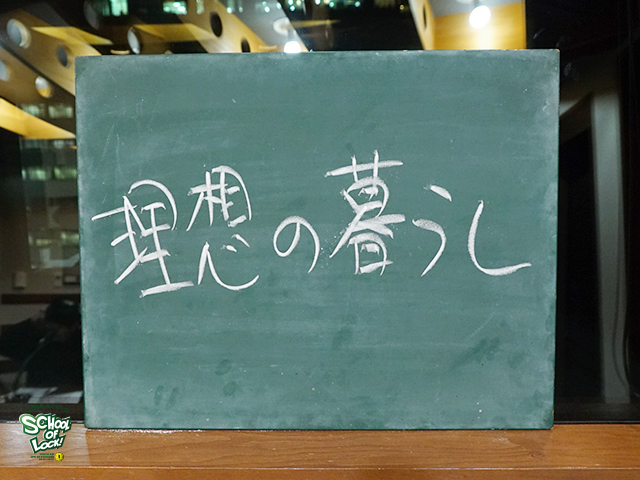 理想の暮らし
SCHOOL
OF
LOCK!